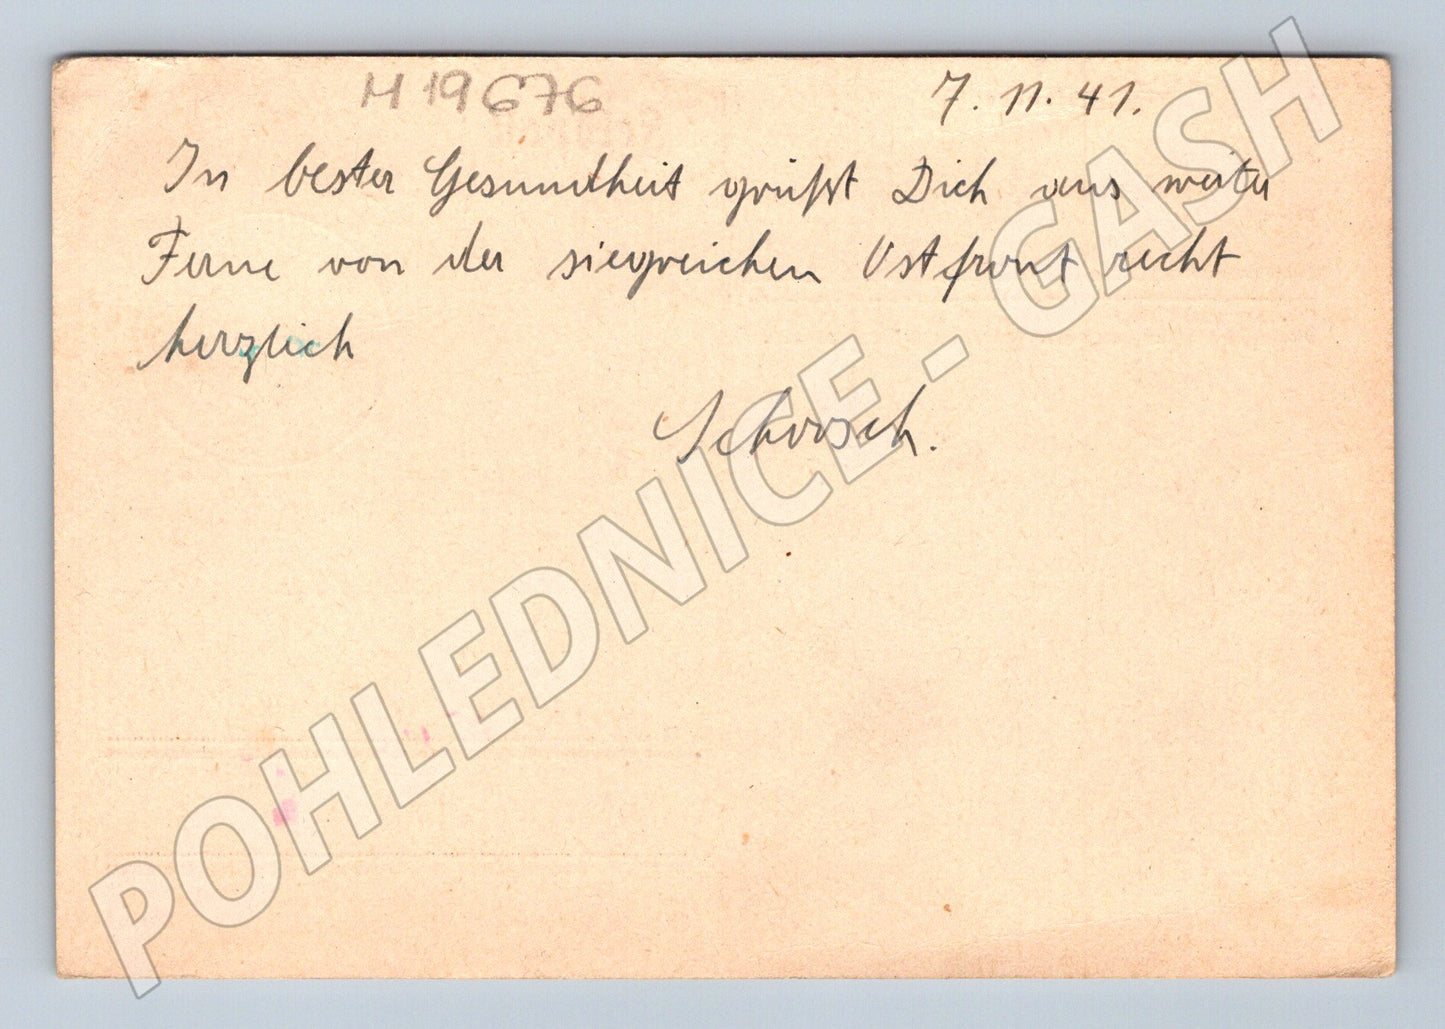 H 19676
7. 11. 41.
In bester Gesundheit grüßt Dich aus weiter
Ferne von der siegreichen Ostfront recht
herzlich
Schorsch.
POHLEDNICE - GASH